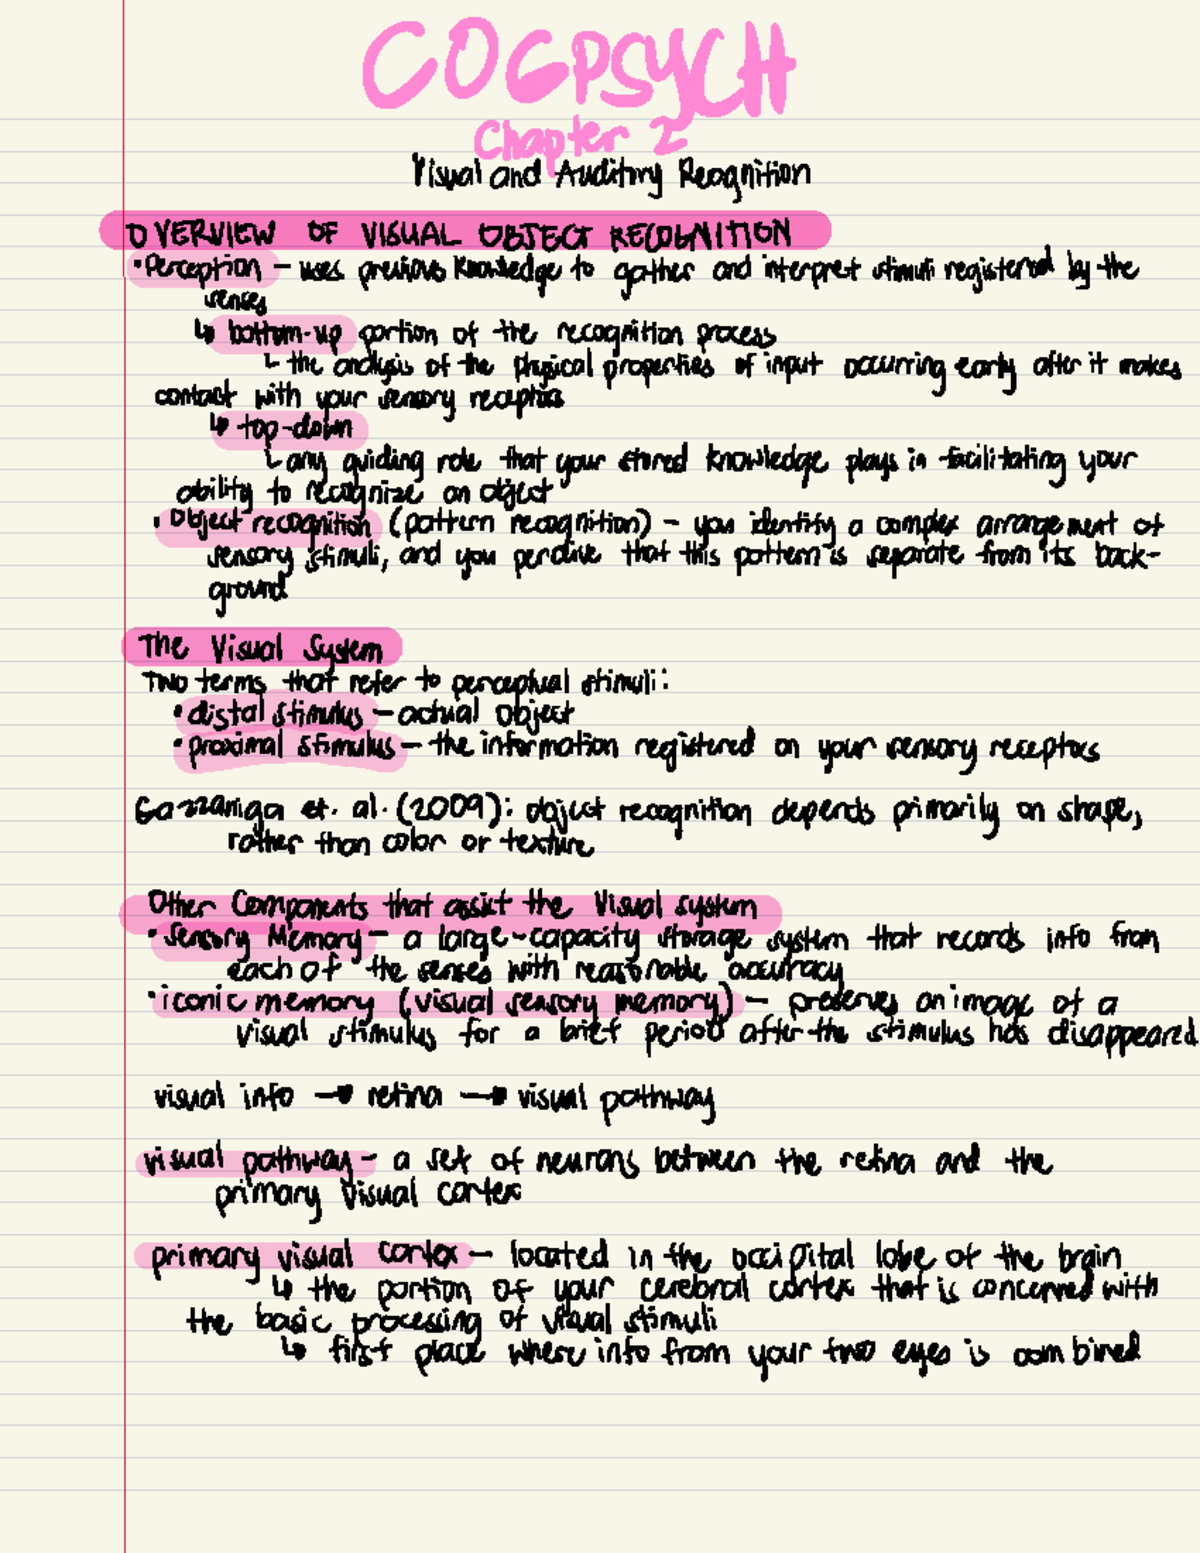 COGPSYCH
Chapter 2
Visual and Auditory Recognition
OVERVIEW OF VISUAL OBJECT RECOGNITION
• Perception – uses previous knowledge to gather and interpret stimuli registered by the
senses
↳ bottom-up portion of the recognition process
└ the analysis of the physical properties of input occurring early after it makes
contact with your sensory receptors
↳ top-down
└ any guiding role that your stored knowledge plays in facilitating your
ability to recognize an object
• Object recognition (pattern recognition) – you identify a complex arrangement of
sensory stimuli, and you percive that this pattern is separate from its back-
ground
The Visual System
Two terms that refer to perceptual stimuli:
• distal stimulus – actual object
• proximal stimulus – the information registered on your sensory receptors
Gazzaniga et. al. (2009): object recognition depends primarily on shape,
rather than color or texture
Other Components that assist the Visual system
• Sensory Memory – a large-capacity storage system that records info from
each of the senses with reasonable accuracy
• iconic memory (visual sensory memory) – preserves an image of a
visual stimulus for a brief period after the stimulus has disappeared
visual info → retina → visual pathway
visual pathway – a set of neurons between the retina and the
primary visual cortex
primary visual cortex – located in the occipital lobe of the brain
↳ the portion of your cerebral cortex that is concerned with
the basic processing of visual stimuli
↳ first place where info from your two eyes is combined